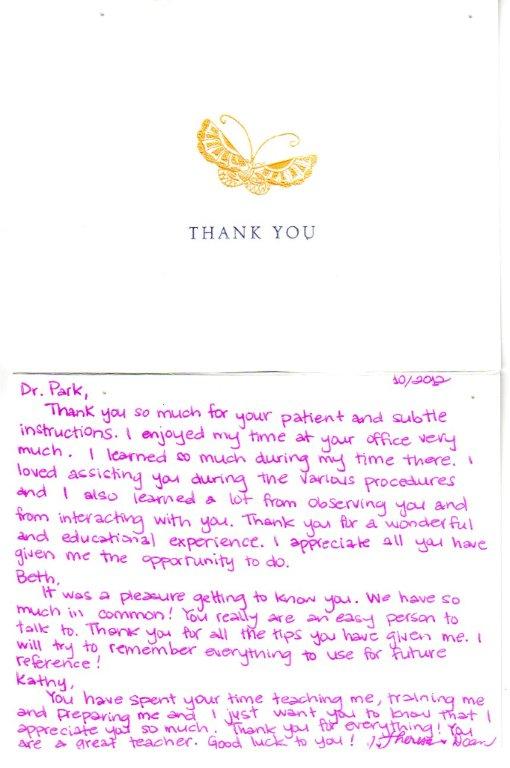 THANK YOU
10/2012
Dr. Park,
Thank you so much for your patient and subtle
instructions. I enjoyed my time at your office very
much. I learned so much during my time there. I
loved assisting you during the various procedures
and I also learned a lot from observing you and
from interacting with you. Thank you for a wonderful
and educational experience. I appreciate all you have
given me the opportunity to do.
Beth,
It was a pleasure getting to know you. We have so
much in common! You really are an easy person to
talk to. Thank you for all the tips you have given me. I
will try to remember everything to use for future
reference!
Kathy,
You have spent your time teaching me, training me
and preparing me and I just want you to know that I
appreciate you so much. Thank you for everything! You
are a great teacher. Good luck to you!